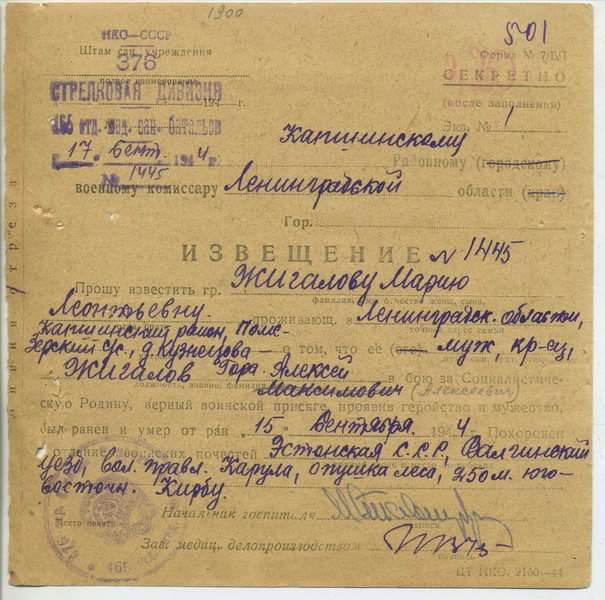 1900
НКО—СССР
501
Штам сан. учреждения
Форма № 7/БЛ
376
СЕКРЕТНО
полное наименование
(после заполнения)
СТРЕЛКОВАЯ ДИВИЗИЯ
194 г.
Экз. № 1
465 отд. мед. сан. батальов
Капшинскому
„17" Сент. 1944 г.
Районному (городскому)
№ 1445
военному комиссару Ленинградской области (края)
Гор.
ИЗВЕЩЕНИЕ N 1445
Прошу известить гр. Жигалову Марию
Леонтьевну проживающ. в Ленинградск. области,
Капшинский район, Пелс-
зерский с/с, д. Кузнецова — о том, что её (его) муж, кр-ец,
Жигалов Алексей
должность, звание, фамилия
Максимович (Алексеевич) в бою за Социалистиче-
скую Родину, верный воинской присяге, проявив геройство и мужество,
был ранен и умер от ран „15" Сентября 1944 г. Похоронен
с отдание воинских почестей Эстонская С.С.Р, Валгинский
уезд, вол. правл. Карула, опушка леса, 250 м. юго-
восточн. Кирбу.
Место печати
Начальник госпиталя
подпись
Зав. медиц. делопроизводством
465
ЦТ НКО. 2150—44
Линия отреза